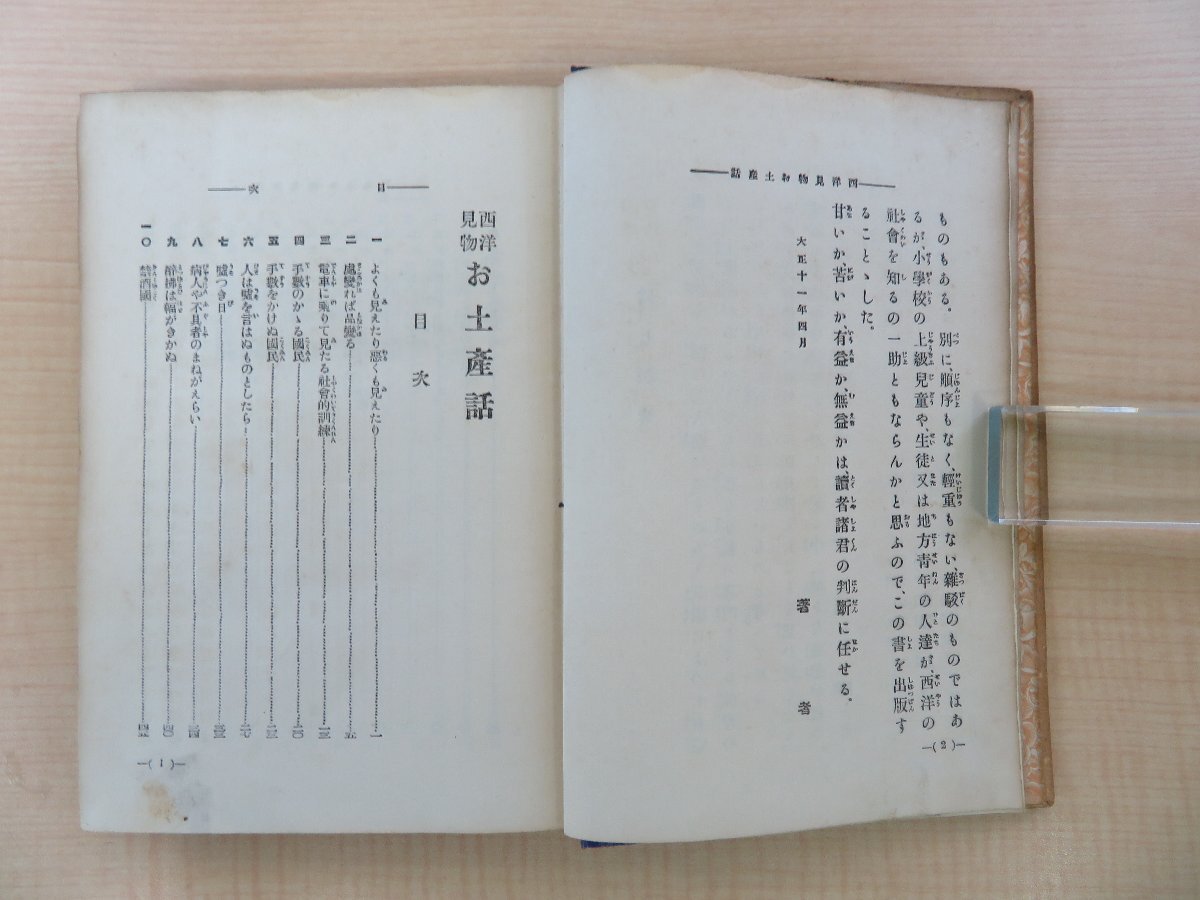 西洋見物お土産話
ものもある。別に、順序もなく、輕重もない、雜駁のものではあ
るが、小學校の上級兒童や、生徒又は地方青年の人達が、西洋の
社會を知るの一助ともならんかと思ふので、この書を出版す
ることゝした。
甘いか、苦いか、有益か、無益かは、讀者諸君の判斷に任せる。
大正十一年四月
著者
—(2)—
目次
西洋見物お土産話
目次
一 よくも見えたり惡くも見えたり 一
二 處變れば品變る 五
三 電車に乘りて見たる社會的訓練 一三
四 手數のかゝる國民 二〇
五 手數をかけぬ國民 二三
六 人は嘘を言はぬものとしたら 二七
七 嘘つき日 三三
八 病人や不具者のまねがえらい 三四
九 醉拂は幅がきかぬ 四〇
一〇 禁酒國 四五
—(1)—